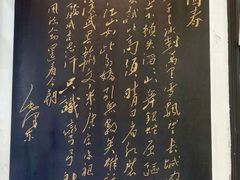 春
冰封万里雪飘望长城内
下顿失滔滔山舞银蛇原驰
试比高须晴日看红装
江山如此多娇引无数英雄
汉武略输文采唐宗宋祖
骄成吉思汗只识弯弓射
风流人物还看今朝
毛泽东